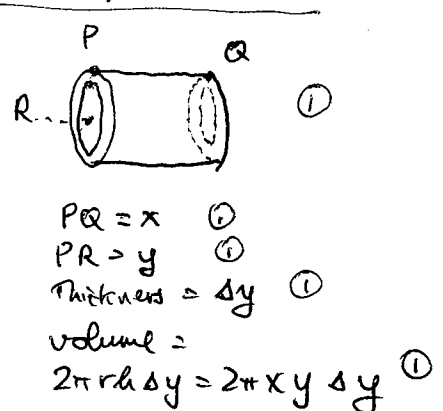 P
Q
R....
①
PQ = x ①
PR = y ①
Thickness = Δy ①
volume =
2πrhΔy = 2πxyΔy ①